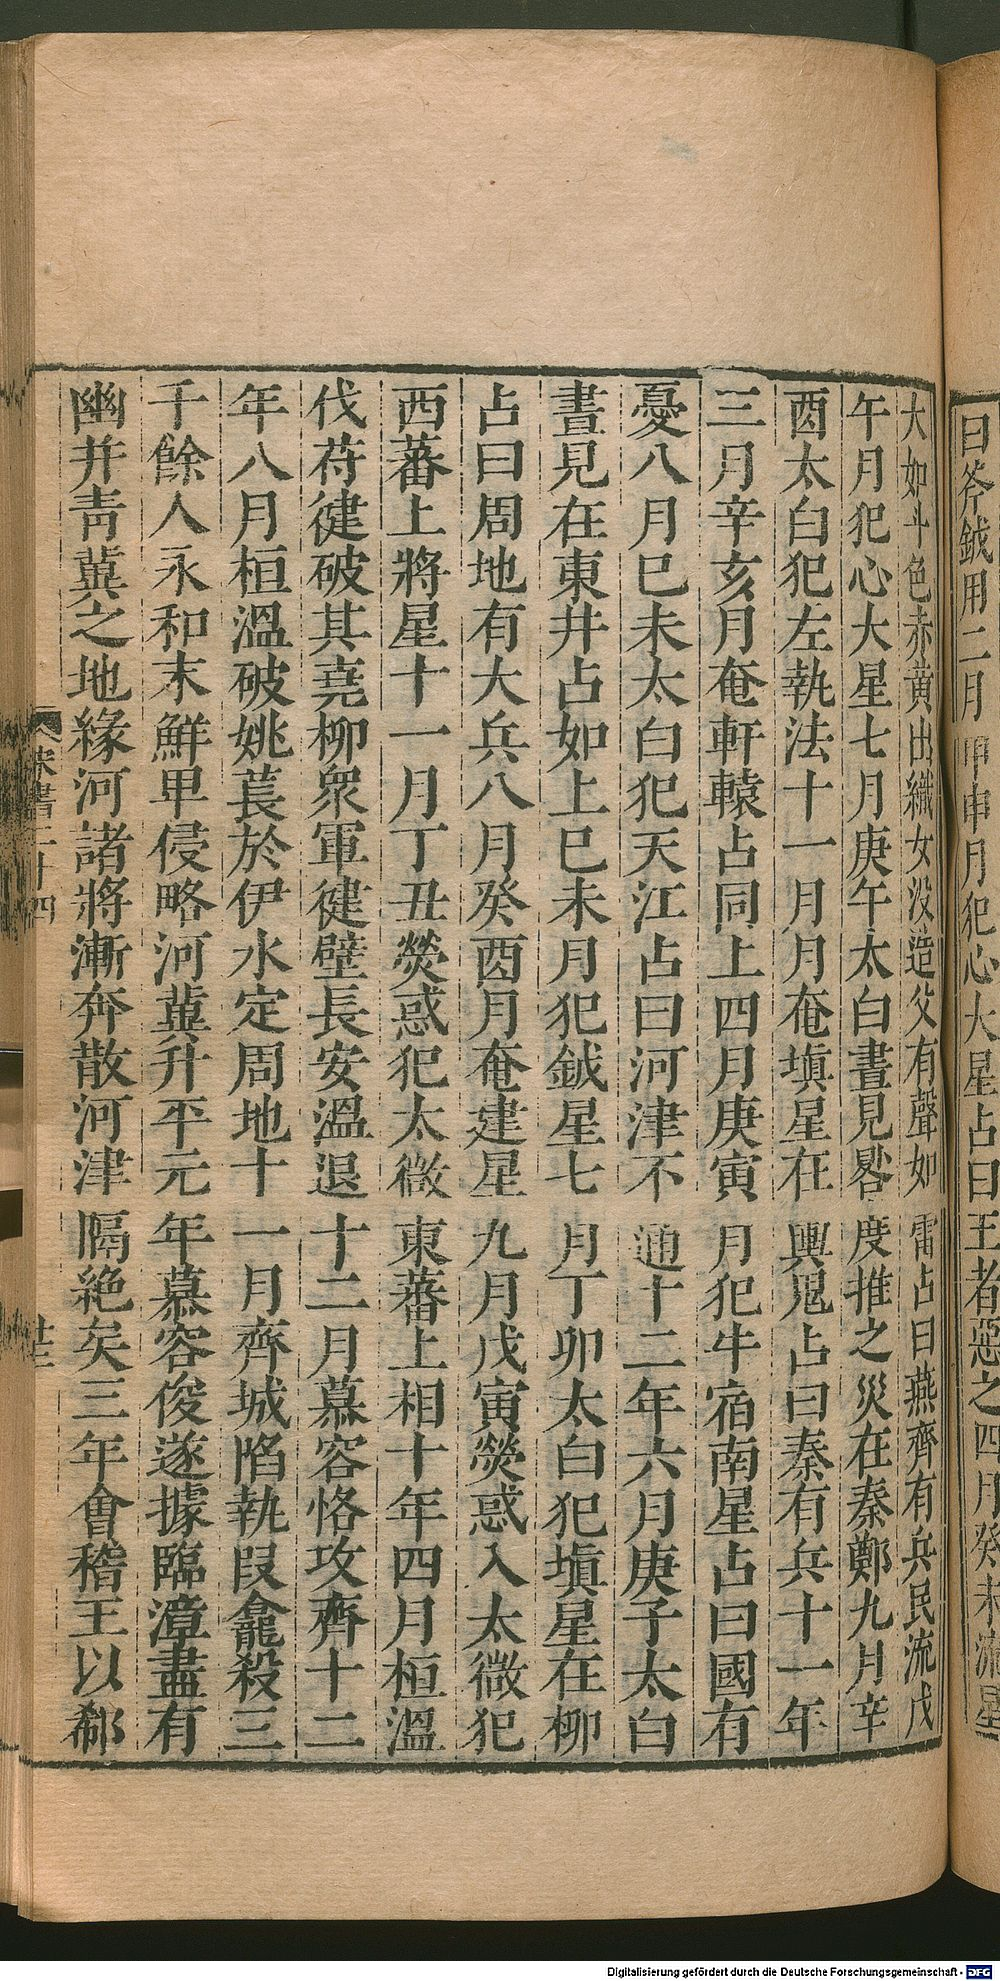 曰斧鉞用二月甲申月犯心大星占曰王者惡之四月癸未流星
大如斗色赤黄出織女没造父有聲如雷占曰燕齊有兵民流戊
午月犯心大星七月庚午太白晝見晷度推之災在秦鄭九月辛
酉太白犯左執法十一月月奄塡星在輿鬼占曰秦有兵十一年
三月辛亥月奄軒轅占同上四月庚寅月犯牛宿南星占曰國有
憂八月巳未太白犯天江占曰河津不通十二年六月庚子太白
晝見在東井占如上巳未月犯鉞星七月丁卯太白犯塡星在柳
占曰周地有大兵八月癸酉月奄建星九月戊寅熒惑入太微犯
西蕃上將星十一月丁丑熒惑犯太微東蕃上相十年四月桓溫
伐苻健破其嶤柳衆軍健壁長安溫退十二月慕容恪攻齊十二
年八月桓溫破姚萇於伊水定周地十一月齊城陷執段龕殺三
千餘人永和末鮮卑侵略河冀升平元年慕容俊遂據臨漳盡有
幽并靑冀之地緣河諸將漸奔散河津隔絶矣三年會稽王以郗
宋書二十四
廿三
Digitalisierung gefördert durch die Deutsche Forschungsgemeinschaft - DFG